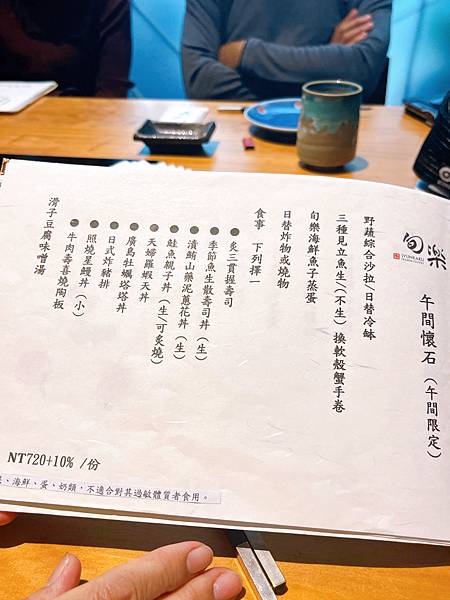 旬樂
午間懷石（午間限定）
野蔬綜合沙拉/日替冷缽
三種見立魚生/(不生) 換軟殼蟹手卷
旬樂海鮮魚子蒸蛋
日替炸物或燒物
食事 下列擇一
●炙三貫握壽司
●季節魚生散壽司丼（生）
●漬鮪山藥泥蔥花丼（生）
●鮭魚親子丼（生/可炙燒）
●天婦羅蝦天丼
●廣島牡蠣塔塔丼
●日式炸豬排
●照燒星鰻丼（小）
●牛肉壽喜燒陶板
滑子豆腐味噌湯
NT720+10% /份
、海鮮、蛋、奶類，不適合對其過敏體質者食用。